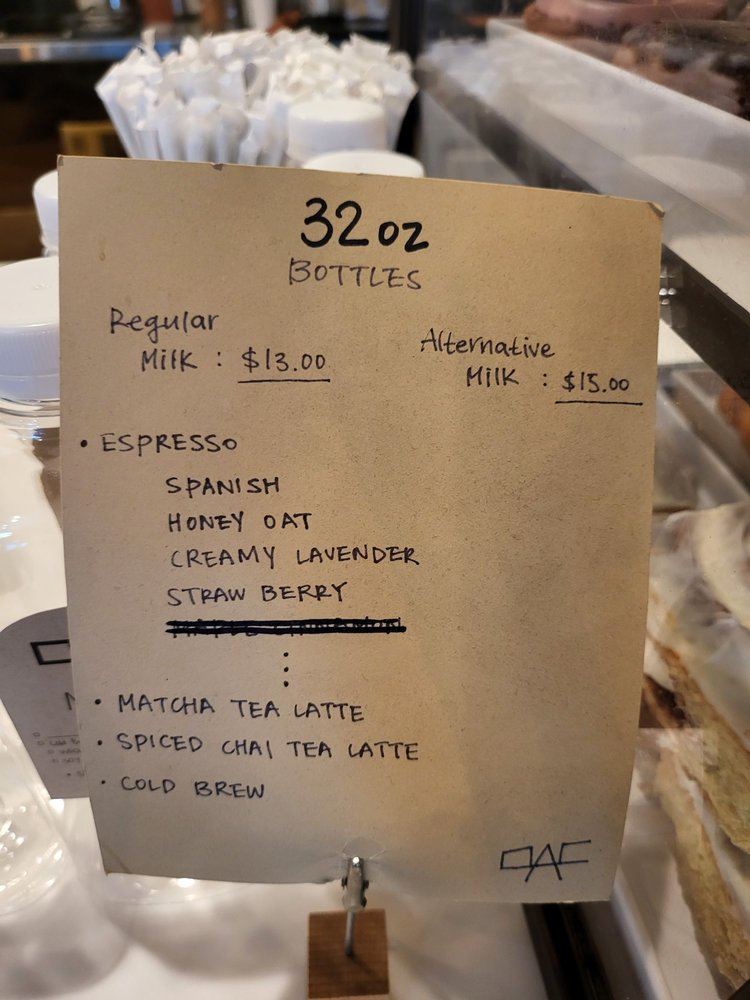 32 oz
BOTTLES
Regular
Milk : $13.00
Alternative
Milk : $15.00
• ESPRESSO
SPANISH
HONEY OAT
CREAMY LAVENDER
STRAW BERRY
• MATCHA TEA LATTE
• SPICED CHAI TEA LATTE
• COLD BREW